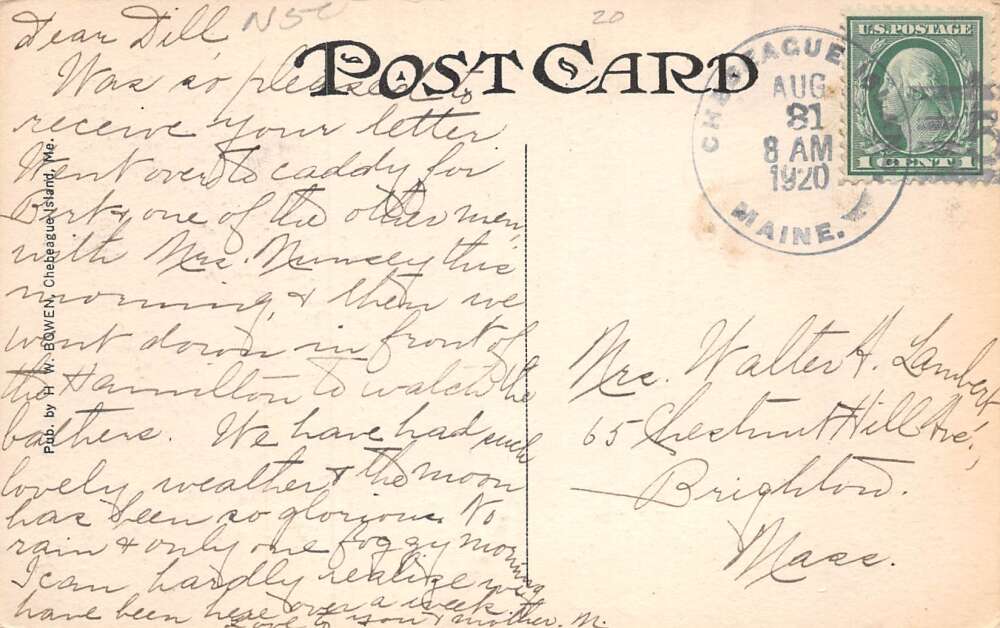 Dear Dill
Was so pleased to
receive your letter
Went over to caddy for
Burt & one of the other men,
with Mrs. Muncey this
morning, & then we
went down in front of
the Hamilton to watch the
bathers. We have had such
lovely weather & the moon
has been so glorious. No
rain & only one foggy morning
I can hardly realize we
have been here over a week.
Love to you & mother. M.
N5C
20
POST CARD
Pub. by H. W. BOWEN, Chebeague Island, Me.
CHEBEAGUE ISLAND
AUG
31
8 AM
1920
MAINE.
U.S. POSTAGE
1 CENT 1
Mrs. Walter A. Lambert,
65 Chestnut Hill Ave.,
Brighton.
Mass.